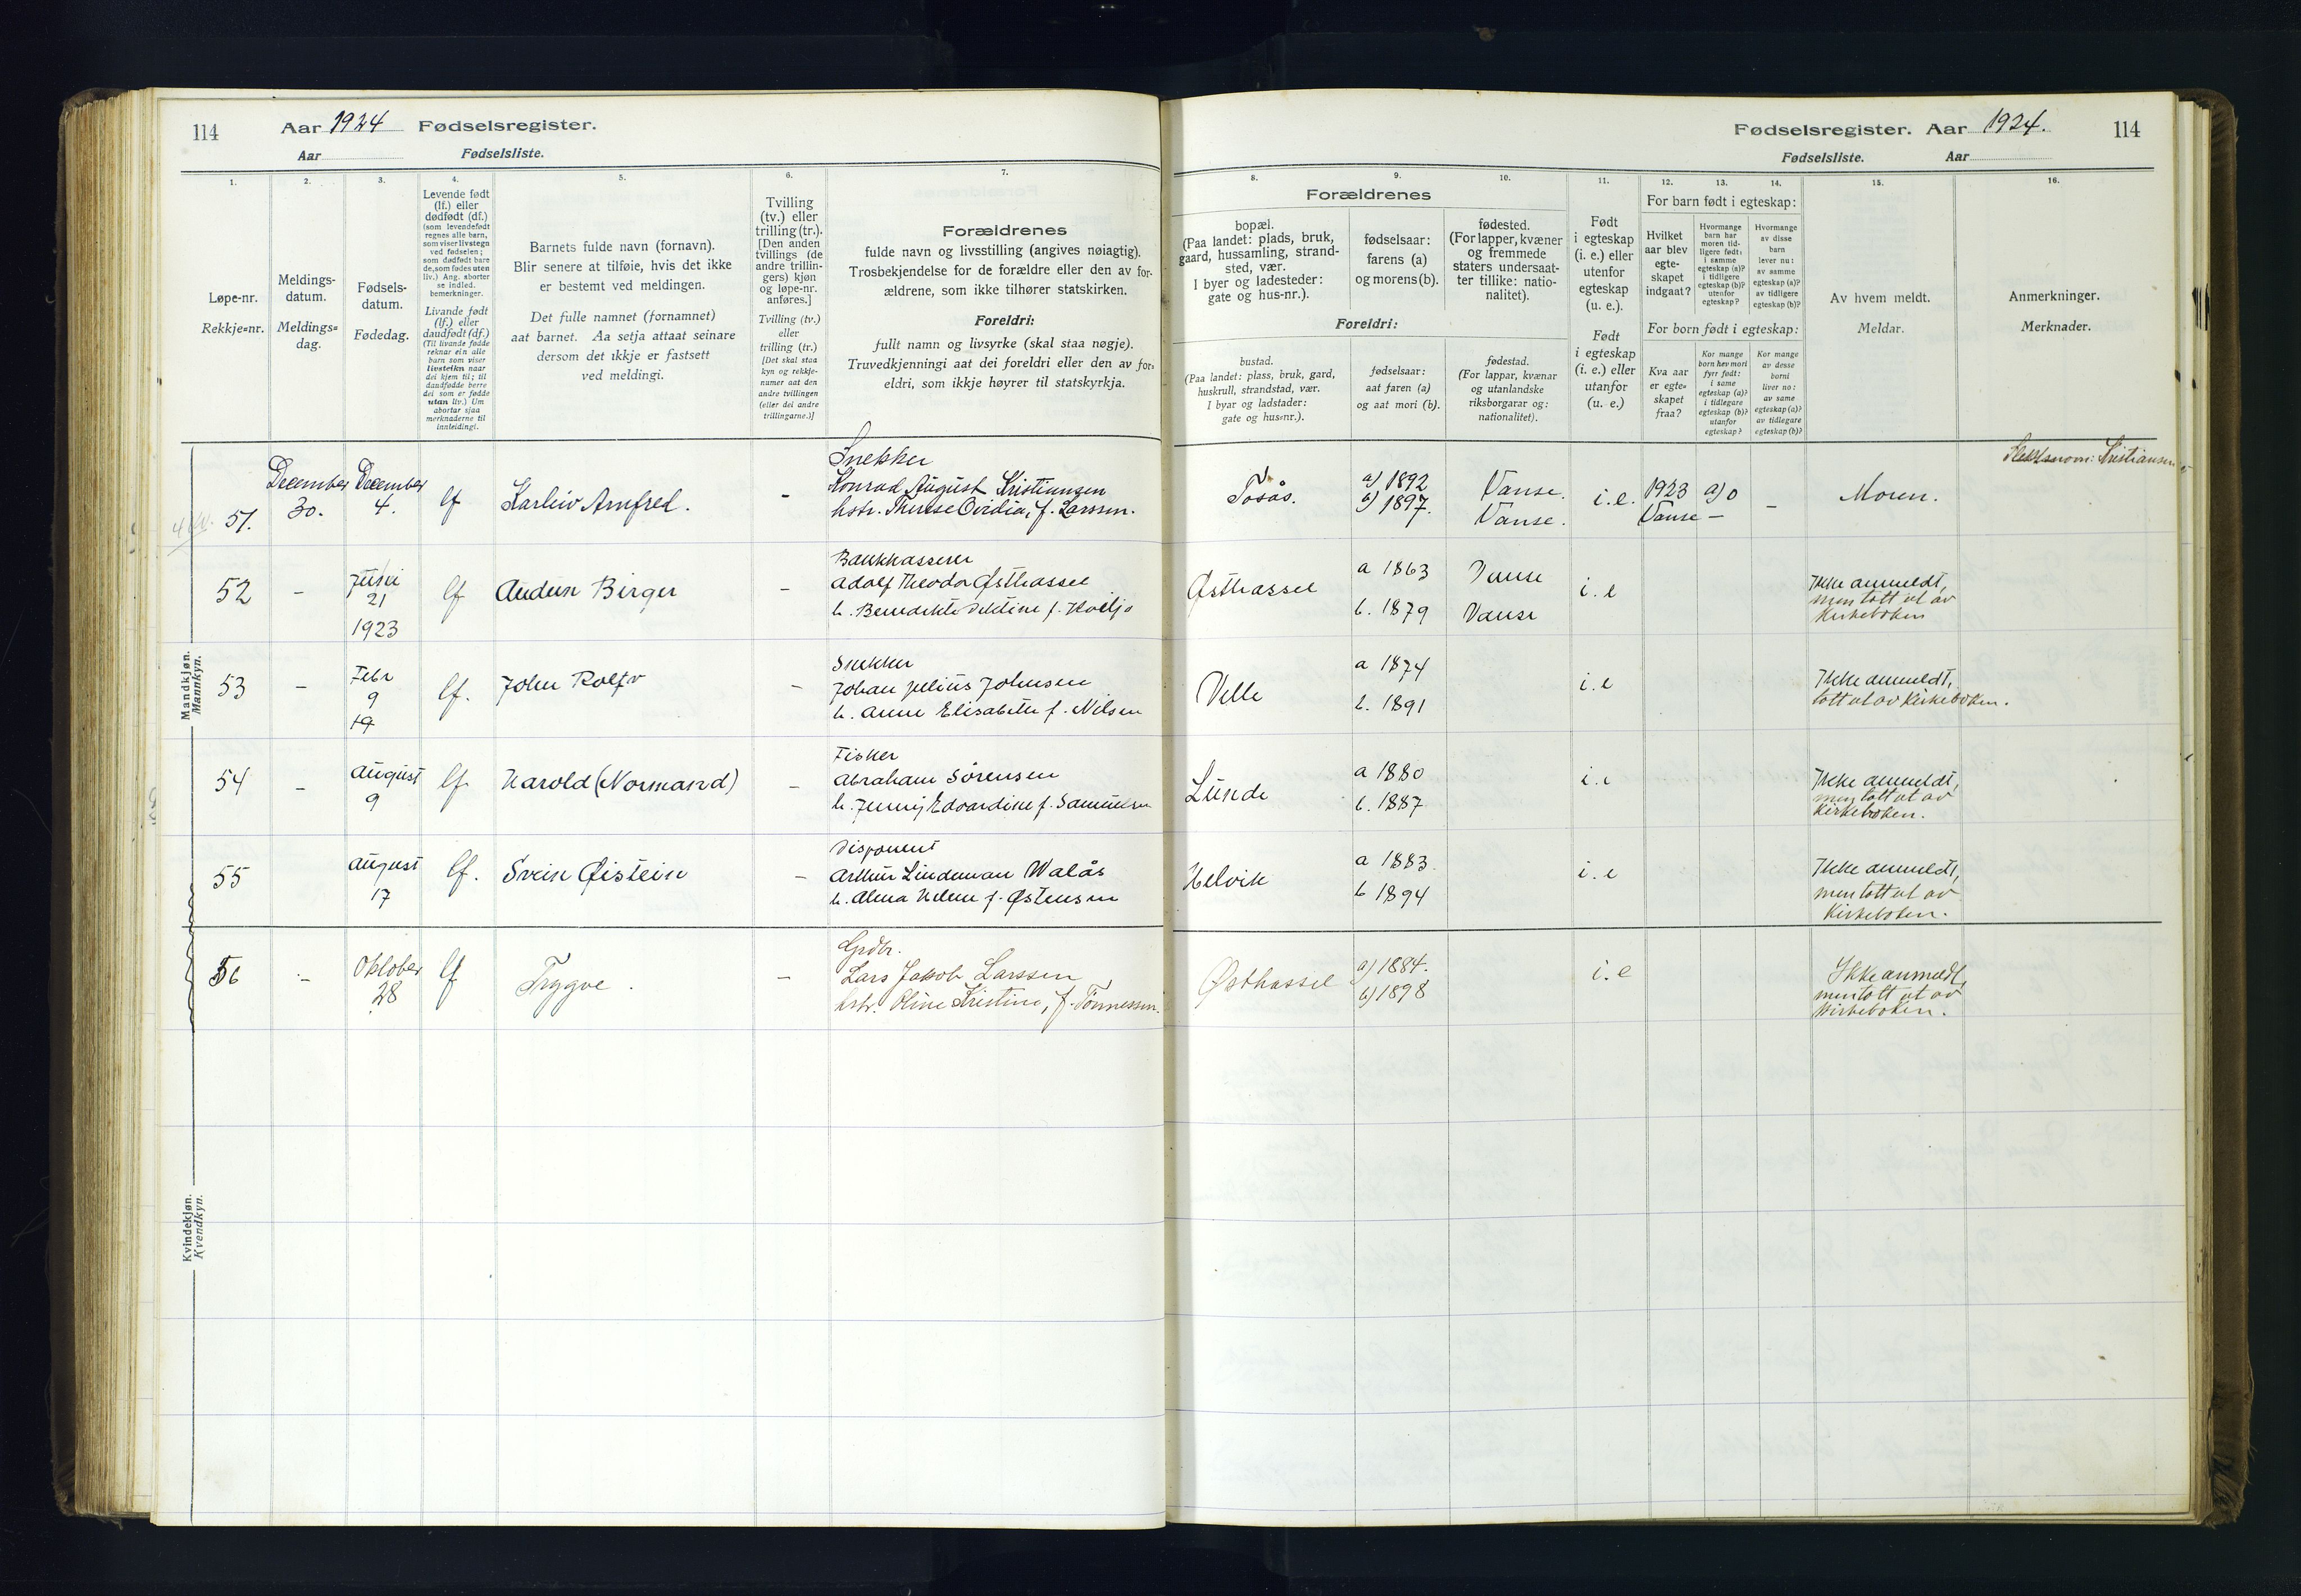 114
Aar 1924 Fødselsregister.
Aar
Fødselsliste.
Fødselsregister. Aar 1924.
114
Fødselsliste.
Aar
1.
2.
3.
4.
5.
6.
7.
8.
9.
10.
11.
12.
13.
14.
15.
16.
Løpe-nr.
Rekkje=nr.
Meldings-
datum.
Meldings=
dag.
Fødsels-
datum.
Fødedag.
Levende født
(lf.) eller
dødfødt (df.)
(som levendefødt
regnes alle barn,
som viser livstegn
ved fødselen;
som dødfødt bare
de, som fødes uten
liv.) Ang. aborter
se indled.
bemerkninger.
Livande født
(lf.) eller
daudfødt (df.)
(Til livande fødde
reknar ein alle
barn som viser
livsteikn naar
dei kjem til; til
daudfødde berre
dei som er fødde
utan liv.) Um
abortar sjaa
merknaderne til
innleidingi.
Barnets fulde navn (fornavn).
Blir senere at tilføie, hvis det ikke
er bestemt ved meldingen.
Det fulle namnet (fornamnet)
aat barnet. Aa setja attaat seinare
dersom det ikkje er fastsett
ved meldingi.
Tvilling
(tv.) eller
trilling (tr.).
[Den anden
tvillings (de
andre trillin-
gers) kjøn
og løpe-nr.
anføres.]
Tvilling (tv.)
eller
trilling (tr.)
[Det skal staa
kyn og rekkje-
numer aat den
andre tvillingen
(eller dei andre
trillingarne.)]
Forældrenes
fulde navn og livsstilling (angives nøiagtig).
Trosbekjendelse for de forældre eller den av for-
ældrene, som ikke tilhører statskirken.
Foreldri:
fullt namn og livsyrke (skal staa nøgje).
Truvedkjenningi aat dei foreldri eller den av for-
eldri, som ikkje høyrer til statskyrkja.
Forældrenes
bopæl.
(Paa landet: plads, bruk,
gaard, hussamling, strand-
sted, vær.
I byer og ladesteder:
gate og hus-nr.).
fødselsaar:
farens (a)
og morens (b).
fødested.
(For lapper, kvæner
og fremmede
staters undersaat-
ter tillike: natio-
nalitet).
Foreldri:
bustad.
(Paa landet: plass, bruk, gard,
huskrull, strandstad, vær.
I byar og ladstader:
gate og hus=nr.).
fødselsaar:
aat faren (a)
og aat mori (b).
fødestad.
(For lappar, kvænar
og utanlandske
riksborgarar og:
nationalitet).
Født
i egteskap
(i. e.) eller
utenfor
egteskap
(u. e.).
Født
i egteskap
(i. e.) eller
utanfor
(u. e.)
For barn født i egteskap:
Hvilket
aar blev
egte-
skapet
indgaat?
Hvormange
barn har
moren tid-
ligere født:
i samme
egteskap (a)?
i tidligere
egteskap (b)?
utenfor
egteskap?
Hvormange
av disse
barn
lever nu:
av samme
egteskap (a)?
av tidligere
egteskap (b)?
For born født i egteskap:
Kva aar
er egte=
skapet
fraa?
Kor mange
born hev mori
fyrr født:
i same
egteskap (a)?
i tidlegare
egteskap (b)?
utanfor
egteskap?
Kor mange
av desse
borni
liver no:
av same
egteskap (a)?
av tidlegare
egteskap (b)?
Av hvem meldt.
Meldar.
Anmerkninger.
Merknader.
Mandkjøn.
Mannkyn.
Kvindekjøn.
Kvendkyn.
51.
December
30.
December
4.
lf
Karleiv Arnfred.
-
Snekker
Konrad August Kristiansen
hstr. Therese Ovidia, f. Larssen.
Tosås.
a) 1892
b) 1897.
Vanse.
Vanse.
i. e.
1923
Vanse
a) 0
-
-
Moren.
Slektsnavn: Kristiansen
52
-
Juni
21
1923
lf
Audun Birger
-
Bankkasserer
Adolf Theodor Østhassel
h. Benedikte Dektine f. Kviljo
Østhassel
a 1863
b. 1879
Vanse
Vanse
i. e
Ikke anmeldt,
men tatt ut av
Kirkeboken
53
-
Febr
9
19
lf.
John Rolfv
-
Snekker
Johan Julius Johnsen
h. Anne Elisabeth f. Nilsen
Velle
a 1874
b. 1891
i. e
Ikke anmeldt,
tatt ut av Kirkeboken.
54
-
August
9
lf
Harold (Normand)
-
Fisker
Abraham Sørensen
h. Jenny Edvardine f. Samuelsen
Lunde
a 1880
b. 1887
i. e
Ikke anmeldt,
men tatt ut av
Kirkeboken.
55
August
17
lf.
Svein Øistein
-
Disponent
Arthur Lindeman Walås
h. Alma Helene f. Østensen
Helvik
a 1883
b 1894
i. e
Ikke anmeldt,
men tatt ut av
Kirkeboken.
56
-
Oktober
28
lf
Trygve.
-
Grdbr.
Lars Jakob Larssen
hstr. Oline Kristine, f. Tønnessen.
Østhassel
a) 1884.
b) 1898
i. e
Ikke anmeldt,
men tatt ut av
Kirkeboken.